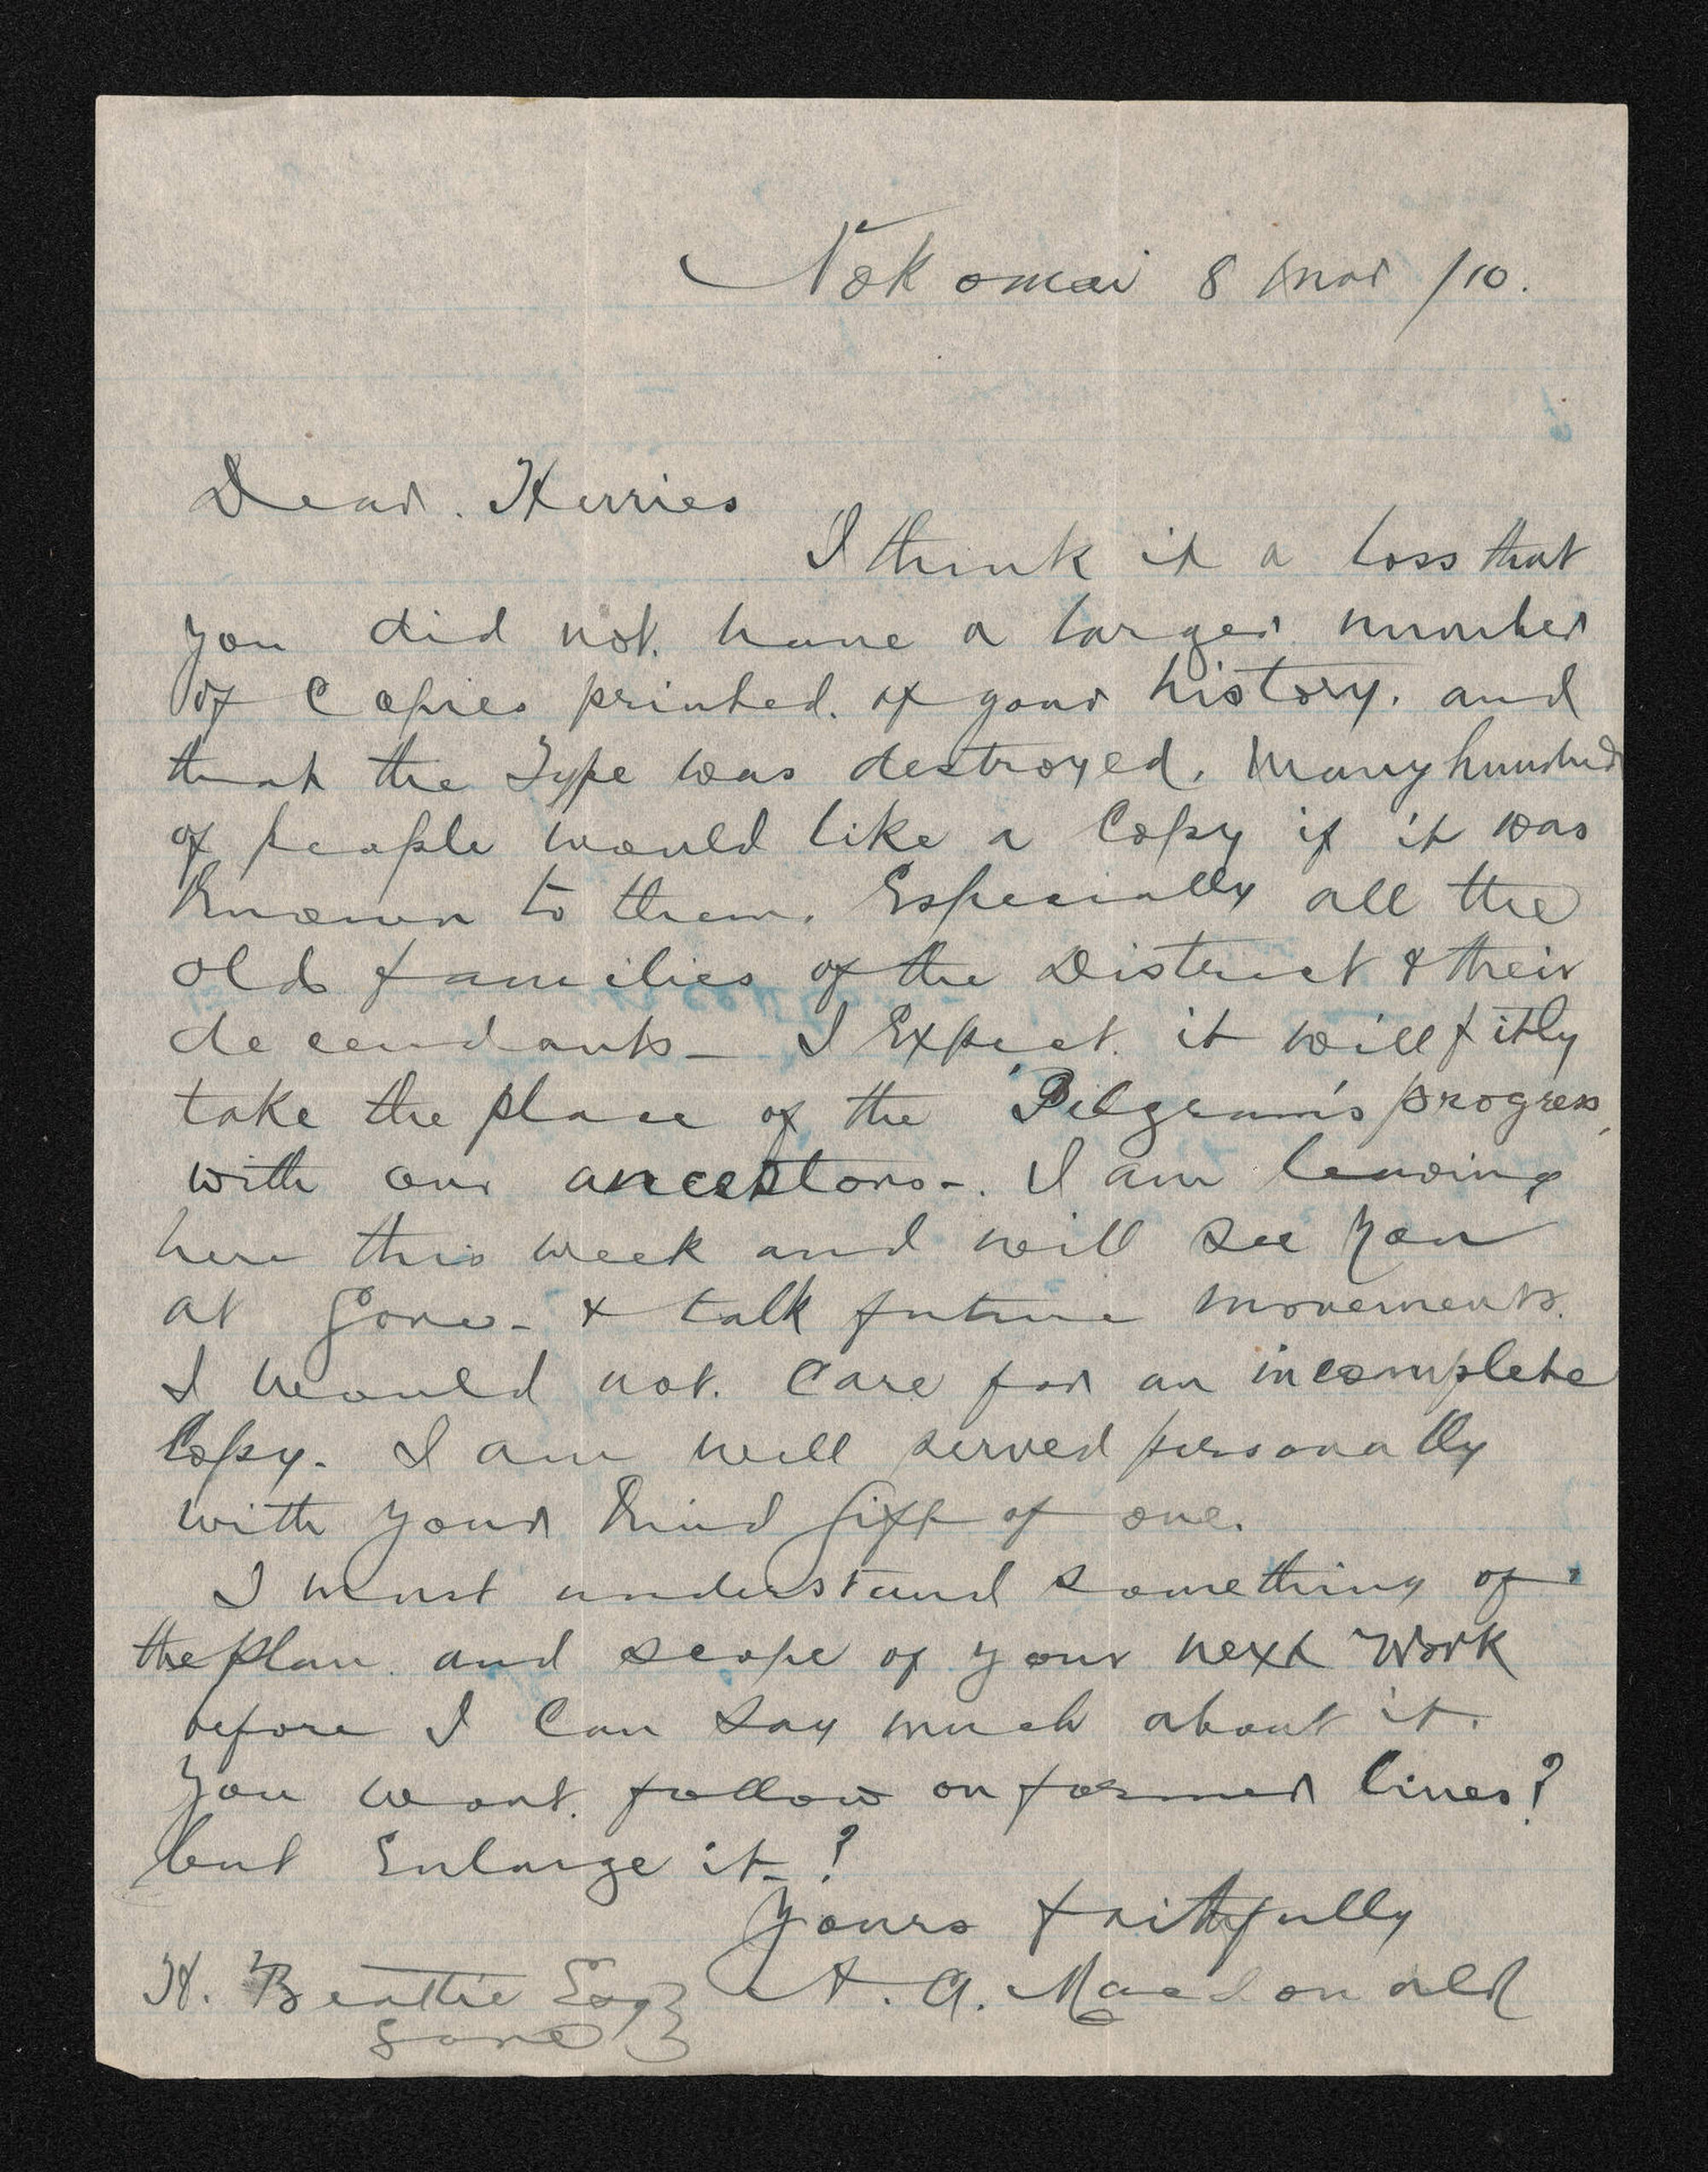 Nokomai 8 Mar /10.
Dear. Herries
I think it a loss that
you did not. have a larger number
of Copies printed. of your history. and
that the Type was destroyed. Many hundred
of people would like a Copy if it was
Known to them. Especially all the
old families of the District & their
decendants - I Expect. it will fitly
take the place of the Pilgram's progress,
with our ancestors -. I am leaving
here this week and will see you
at Gore - & talk future movements.
I would not. Care for an incomplete
Copy. I am well served personally
with your Kind Gift of one.
I must understand something of
the plan. and scope of your next Work
before I Can Say much about it.
You wont. follow on former lines?
but Enlarge it - ?
Yours faithfully
H. Beattie Esq } A. A. Macdonald
Gore